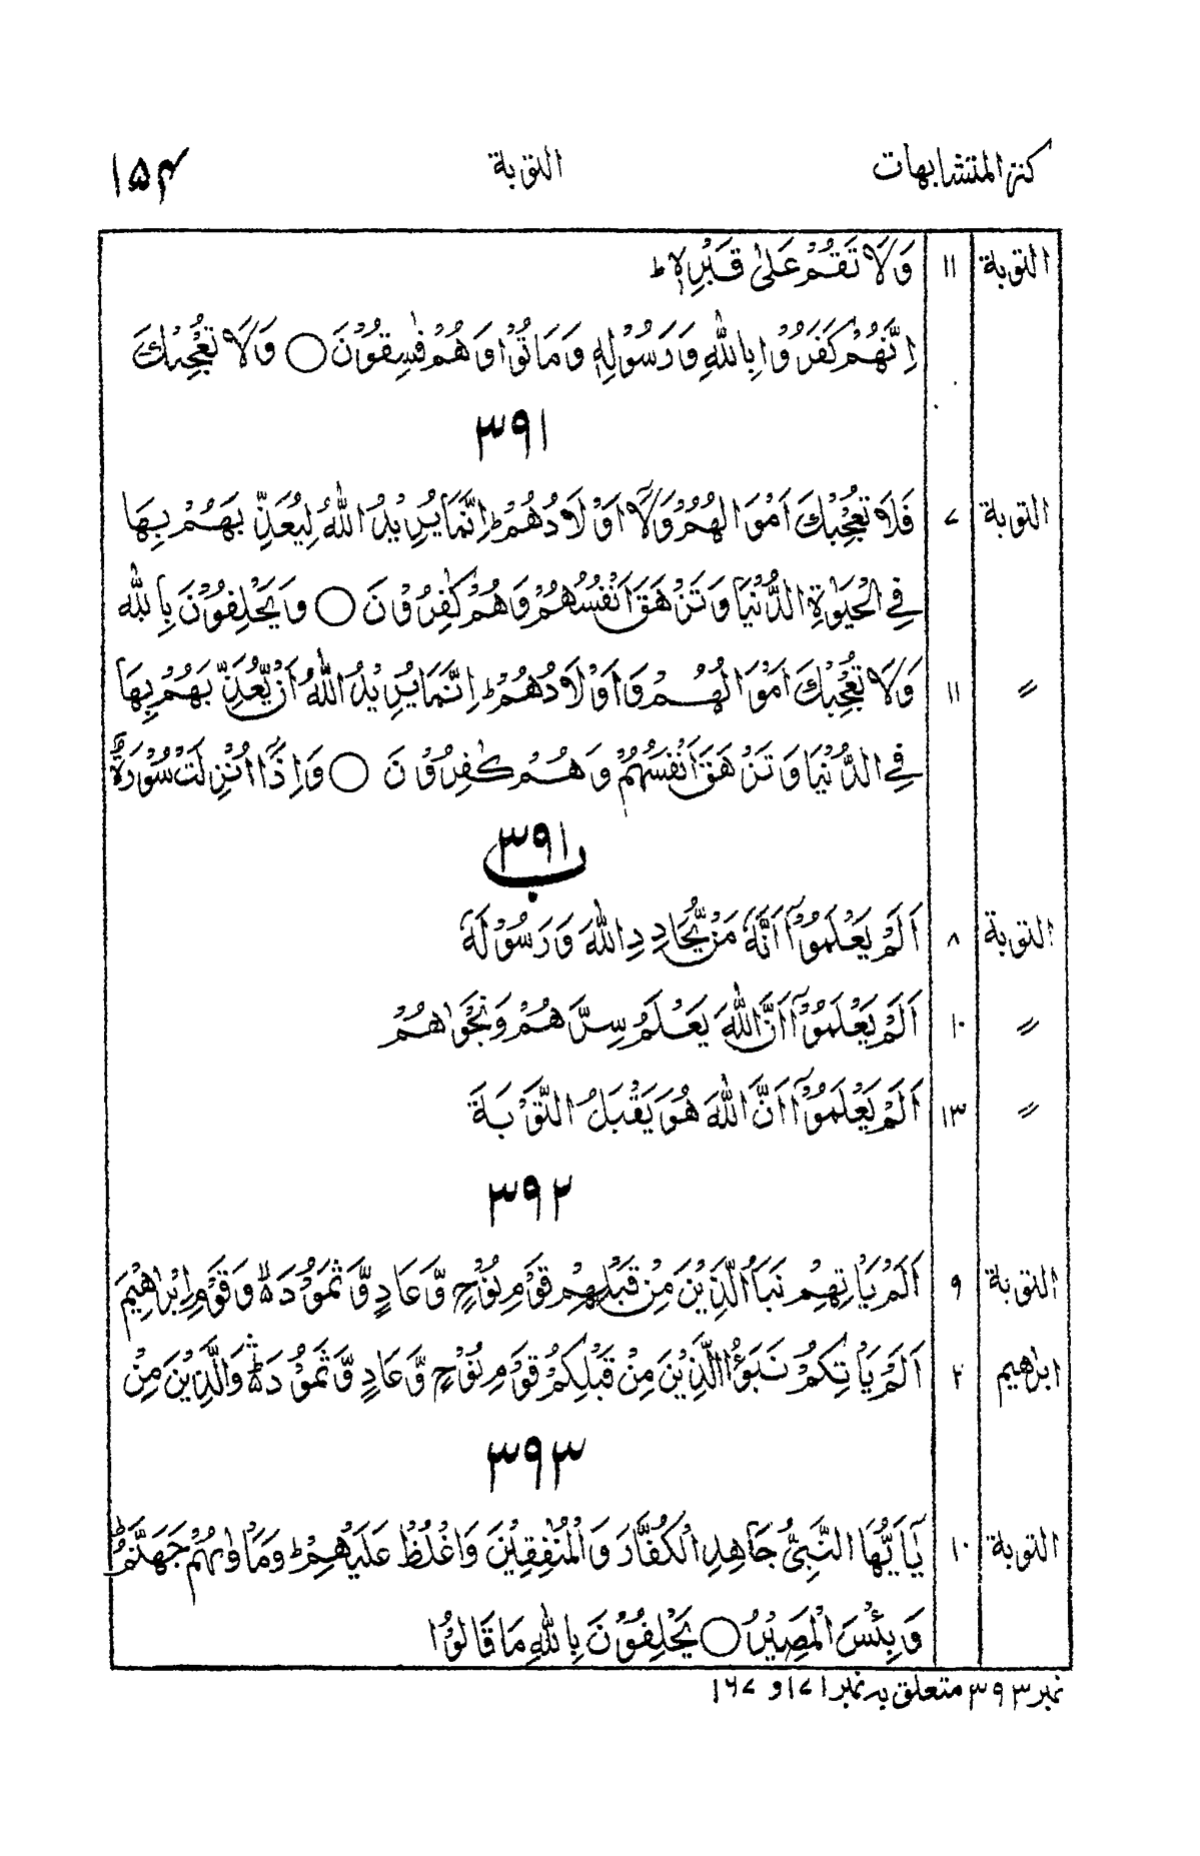 كنز المتشابهات التوبة ۱۵۴
التوبة ۱۱ وَلَا تَقُمْ عَلٰى قَبْرِهٖ ط
اِنَّهُمْ كَفَرُوْا بِاللّٰهِ وَرَسُوْلِهٖ وَمَاتُوْا وَهُمْ فٰسِقُوْنَ ○ وَلَا تُعْجِبْكَ
۳۹۱
التوبة ۷ فَلَا تُعْجِبْكَ اَمْوَالُهُمْ وَلَآ اَوْلَادُهُمْ ط اِنَّمَا يُرِيْدُ اللّٰهُ لِيُعَذِّبَهُمْ بِهَا
فِي الْحَيٰوةِ الدُّنْيَا وَتَزْهَقَ اَنْفُسُهُمْ وَهُمْ كٰفِرُوْنَ ○ وَيَحْلِفُوْنَ بِاللّٰهِ
〃 ۱۱ وَلَا تُعْجِبْكَ اَمْوَالُهُمْ وَاَوْلَادُهُمْ ط اِنَّمَا يُرِيْدُ اللّٰهُ اَنْ يُّعَذِّبَهُمْ بِهَا
فِي الدُّنْيَا وَتَزْهَقَ اَنْفُسُهُمْ وَهُمْ كٰفِرُوْنَ ○ وَاِذَآ اُنْزِلَتْ سُوْرَةٌ
۳۹۱ ب
التوبة ۸ اَلَمْ يَعْلَمُوْٓا اَنَّهٗ مَنْ يُّحَادِدِ اللّٰهَ وَرَسُوْلَهٗ
〃 ۱۰ اَلَمْ يَعْلَمُوْٓا اَنَّ اللّٰهَ يَعْلَمُ سِرَّهُمْ وَنَجْوٰىهُمْ
〃 ۱۳ اَلَمْ يَعْلَمُوْٓا اَنَّ اللّٰهَ هُوَ يَقْبَلُ التَّوْبَةَ
۳۹۲
التوبة ۹ اَلَمْ يَاْتِهِمْ نَبَاُ الَّذِيْنَ مِنْ قَبْلِهِمْ قَوْمِ نُوْحٍ وَّعَادٍ وَّثَمُوْدَ ۵ وَقَوْمِ اِبْرٰهِيْمَ
ابراهيم ۲ اَلَمْ يَاْتِكُمْ نَبَؤُا الَّذِيْنَ مِنْ قَبْلِكُمْ قَوْمِ نُوْحٍ وَّعَادٍ وَّثَمُوْدَ ۵ وَالَّذِيْنَ مِنْ
۳۹۳
التوبة ۱۰ يٰٓاَيُّهَا النَّبِيُّ جَاهِدِ الْكُفَّارَ وَالْمُنٰفِقِيْنَ وَاغْلُظْ عَلَيْهِمْ ط وَمَاْوٰىهُمْ جَهَنَّمُ ط
وَبِئْسَ الْمَصِيْرُ ○ يَحْلِفُوْنَ بِاللّٰهِ مَا قَالُوْا
نمبر ۳۹۳ متعلق به نمبر ۱۷۱ و ۱۶۷